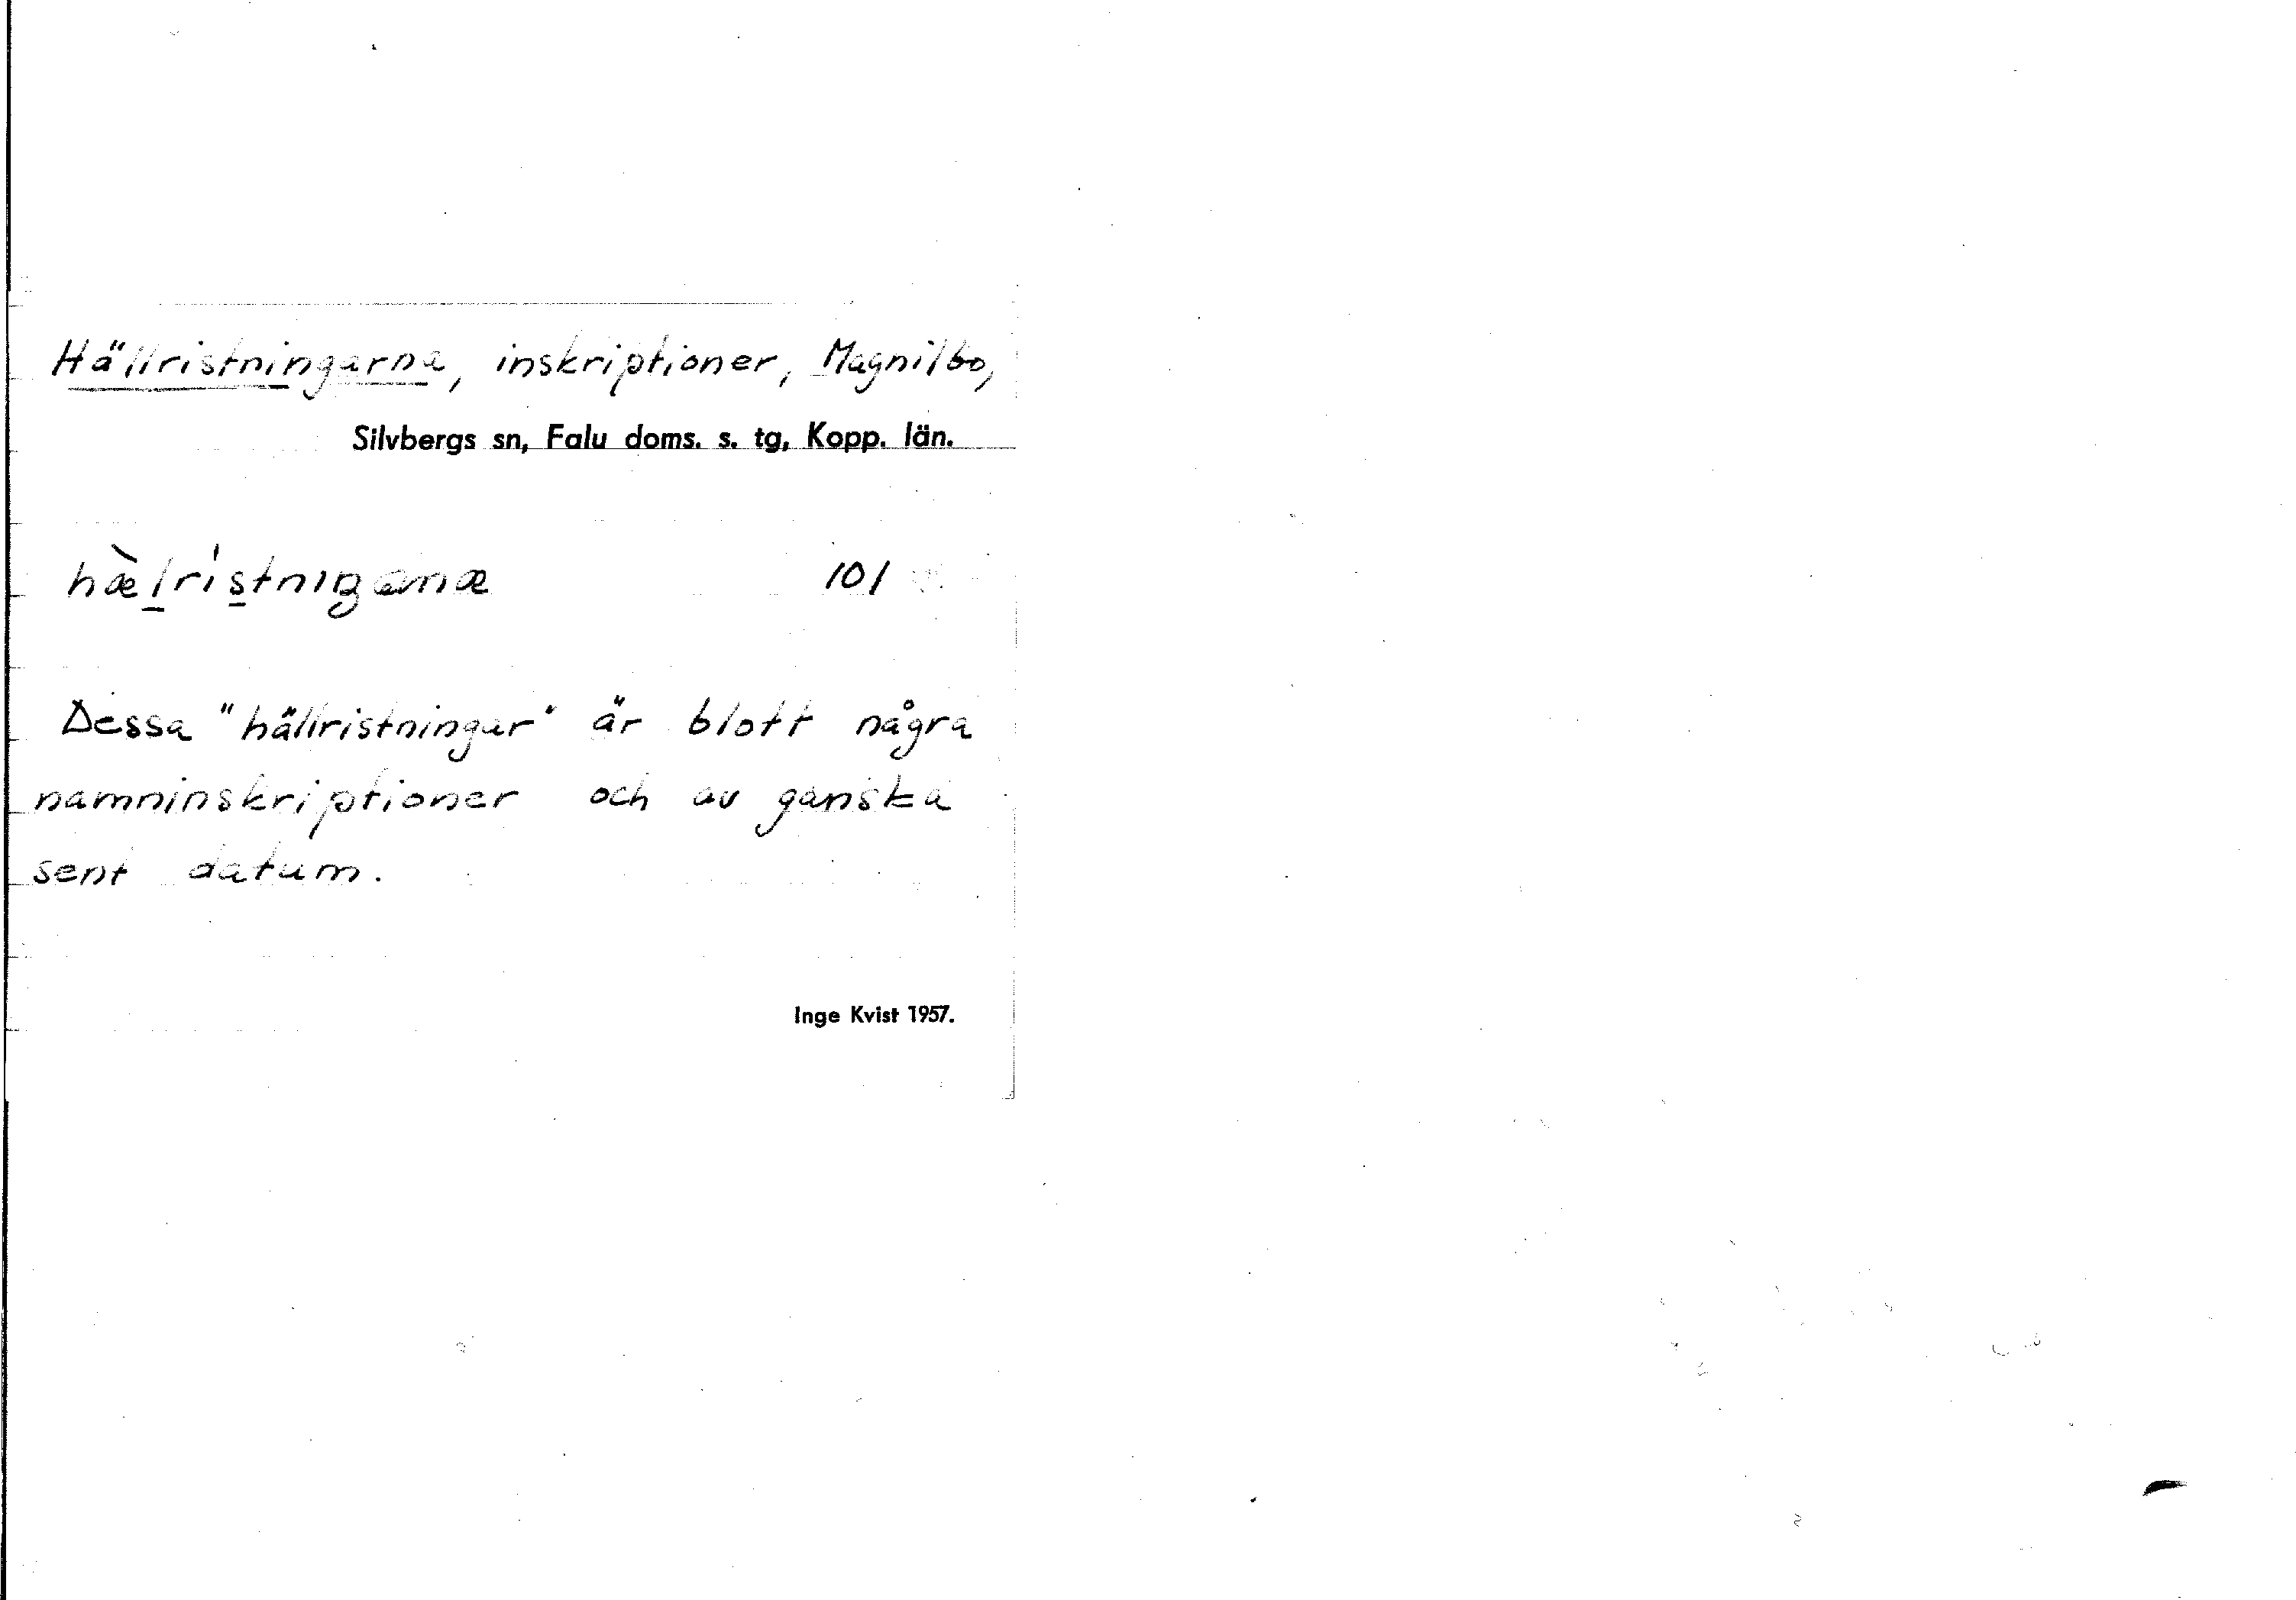 Hällristningarna, inskriptioner, Magnilbo,
Silvbergs sn, Falu doms. s. tg, Kopp. län.
101
Dessa "hällristningar" är blott några
namninskriptioner och av ganska
sent datum.
Inge Kvist 1957.